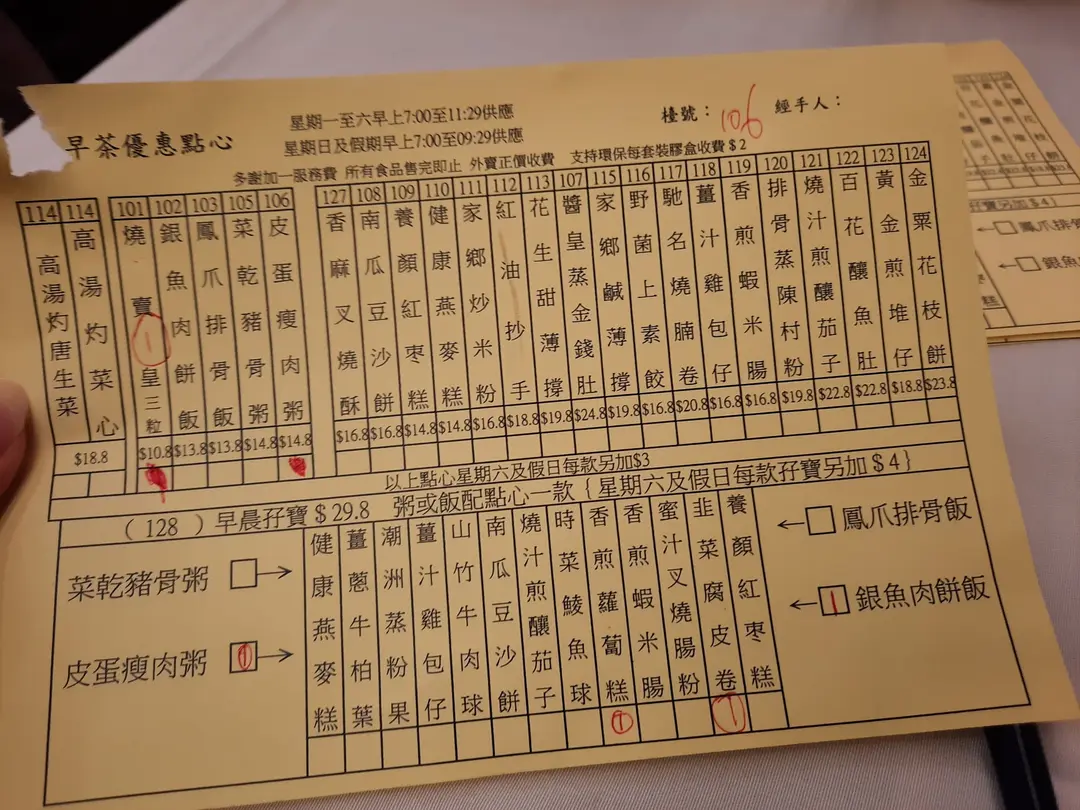 早茶優惠點心
星期一至六早上7:00至11:29供應
星期日及假期早上7:00至09:29供應
檯號：106 經手人：
多謝加一服務費 所有食品售完即止 外賣正價收費 支持環保每套裝膠盒收費＄2
114 高湯灼唐生菜
114 高湯灼菜心
$18.8
101 燒賣皇三粒 $10.8
1
102 銀魚肉餅飯 $13.8
103 鳳爪排骨飯 $13.8
105 菜乾豬骨粥 $14.8
106 皮蛋瘦肉粥 $14.8
127 香麻叉燒酥 $16.8
108 南瓜豆沙餅 $16.8
109 養顏紅棗糕 $14.8
110 健康燕麥糕 $14.8
111 家鄉炒米粉 $16.8
112 紅油抄手 $18.8
113 花生甜薄撐 $19.8
107 醬皇蒸金錢肚 $24.8
115 家鄉鹹薄撐 $19.8
116 野菌上素餃 $16.8
117 馳名燒腩卷 $20.8
118 薑汁雞包仔 $16.8
119 香煎蝦米腸 $16.8
120 排骨蒸陳村粉 $19.8
121 燒汁煎釀茄子 $22.8
122 百花釀魚肚 $22.8
123 黃金煎堆仔 $18.8
124 金粟花枝餅 $23.8
以上點心星期六及假日每款另加$3
（128 ）早晨孖寶＄29.8 粥或飯配點心一款｛星期六及假日每款孖寶另加＄4｝
菜乾豬骨粥
皮蛋瘦肉粥 1
健康燕麥糕
薑蔥牛柏葉
潮洲蒸粉果
薑汁雞包仔
山竹牛肉球
南瓜豆沙餅
燒汁煎釀茄子
時菜鯪魚球
香煎蘿蔔糕 1
香煎蝦米腸
蜜汁叉燒腸粉
韭菜腐皮卷 1
養顏紅棗糕
鳳爪排骨飯
1 銀魚肉餅飯
另加＄4｝
鳳爪排骨
銀魚